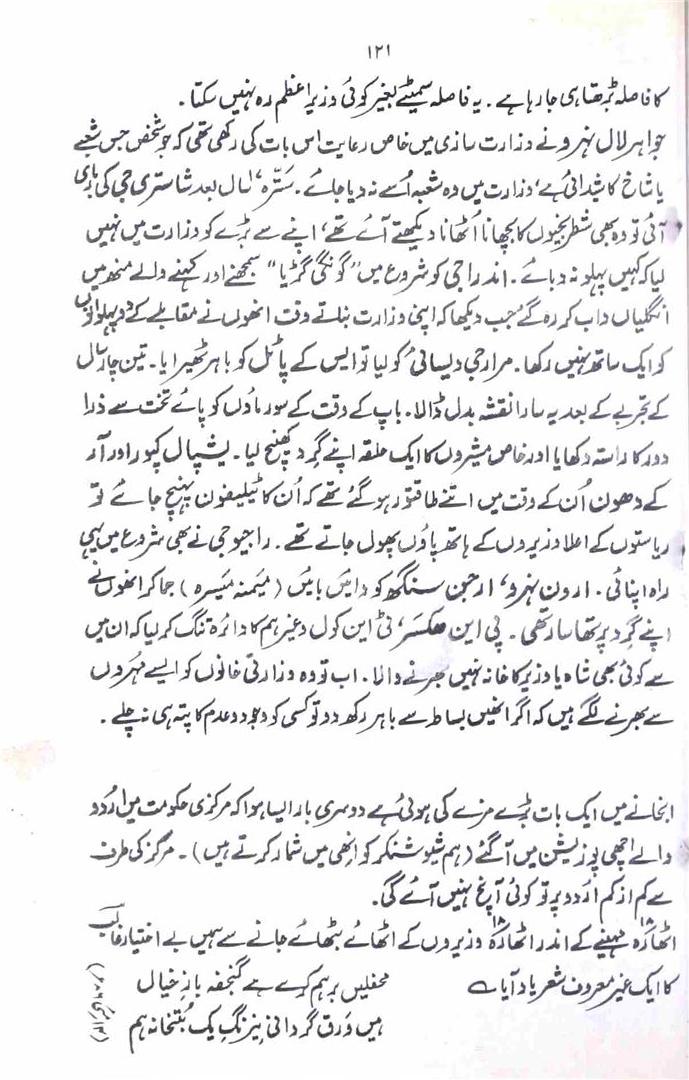 ۱۲۱
کا فاصلہ بڑھتا ہی جا رہا ہے۔ یہ فاصلہ سمیٹے بغیر کوئی وزیر اعظم رہ نہیں سکتا۔
جواہر لال نہرو نے وزارت سازی میں خاص رعایت اس بات کی رکھی تھی کہ جو شخص جس شعبے
یا شاخ کا شیدائی ہے، وزارت میں وہ شعبہ اُسے نہ دیا جائے۔ سترہ سال بعد شاستری جی کی باری
آئی تو وہ بھی شطرنجیوں کا بچھانا اُٹھانا دیکھتے آئے تھے، اپنے سے بڑے کو وزارت میں نہیں
لیا کہ کہیں پہلو نہ دبائے۔ اندرا جی کو شروع میں "گونگی گڑیا" سمجھنے اور کہنے والے منھ میں
انگلیاں داب کر رہ گئے جب دیکھا کہ اپنی وزارت بناتے وقت انھوں نے مقابلے کے دو پہلوانوں
کو ایک ساتھ نہیں رکھا۔ مرارجی دیسائی کو لیا تو ایس کے پاٹل کو باہر ٹھیرایا۔ تین چار سال
کے تجربے کے بعد یہ سارا نقشہ بدل ڈالا۔ باپ کے وقت کے سورماؤں کو پائے تخت سے ذرا
دور کا راستہ دکھایا اور خاص مشیروں کا ایک حلقہ اپنے گرد کھینچ لیا۔ یشپال کپور اور آر
کے دھون اُن کے وقت میں اتنے طاقتور ہو گئے تھے کہ اُن کا ٹیلیفون پہنچ جائے تو
ریاستوں کے اعلا وزیروں کے ہاتھ پاؤں پھول جاتے تھے۔ راجیو جی نے بھی شروع میں یہی
راہ اپنائی۔ ارون نہرو، ارجن سنگھ کو دائیں بائیں (میمنہ میسرہ) جما کر انھوں نے
اپنے گرد پرتھا سارتھی۔ پی این ہکسر، ٹی این کول وغیرہم کا دائرہ تنگ کر لیا کہ ان میں
سے کوئی بھی شاہ یا وزیر کا خانہ نہیں بھرنے والا۔ اب تو وہ وزارتی خانوں کو ایسے مُہروں
سے بھرنے لگے ہیں کہ اگر انھیں بساط سے باہر رکھ دو تو کسی کو وجود و عدم کا پتہ ہی نہ چلے۔
انجانے میں ایک بات بڑے مزے کی ہوئی ہے دوسری بار ایسا ہوا کہ مرکزی حکومت میں اردو
والے اچھی پوزیشن میں آ گئے (ہم شیو شنکر کو انھی میں شمار کرتے ہیں)۔ مرکز کی طرف
سے کم از کم اردو پر تو کوئی آنچ نہیں آئے گی۔
اٹھارہ ۱۸ مہینے کے اندر اٹھارہ ۱۸ وزیروں کے اٹھائے بٹھائے جانے سے ہمیں بے اختیار غالب
کا ایک غیر معروف شعر یاد آیا ؎
محفلیں برہم کرے ہے گنجفہ بازِ خیال
ہیں ورق گردانیِ نیرنگِ یک بُتخانہ ہم